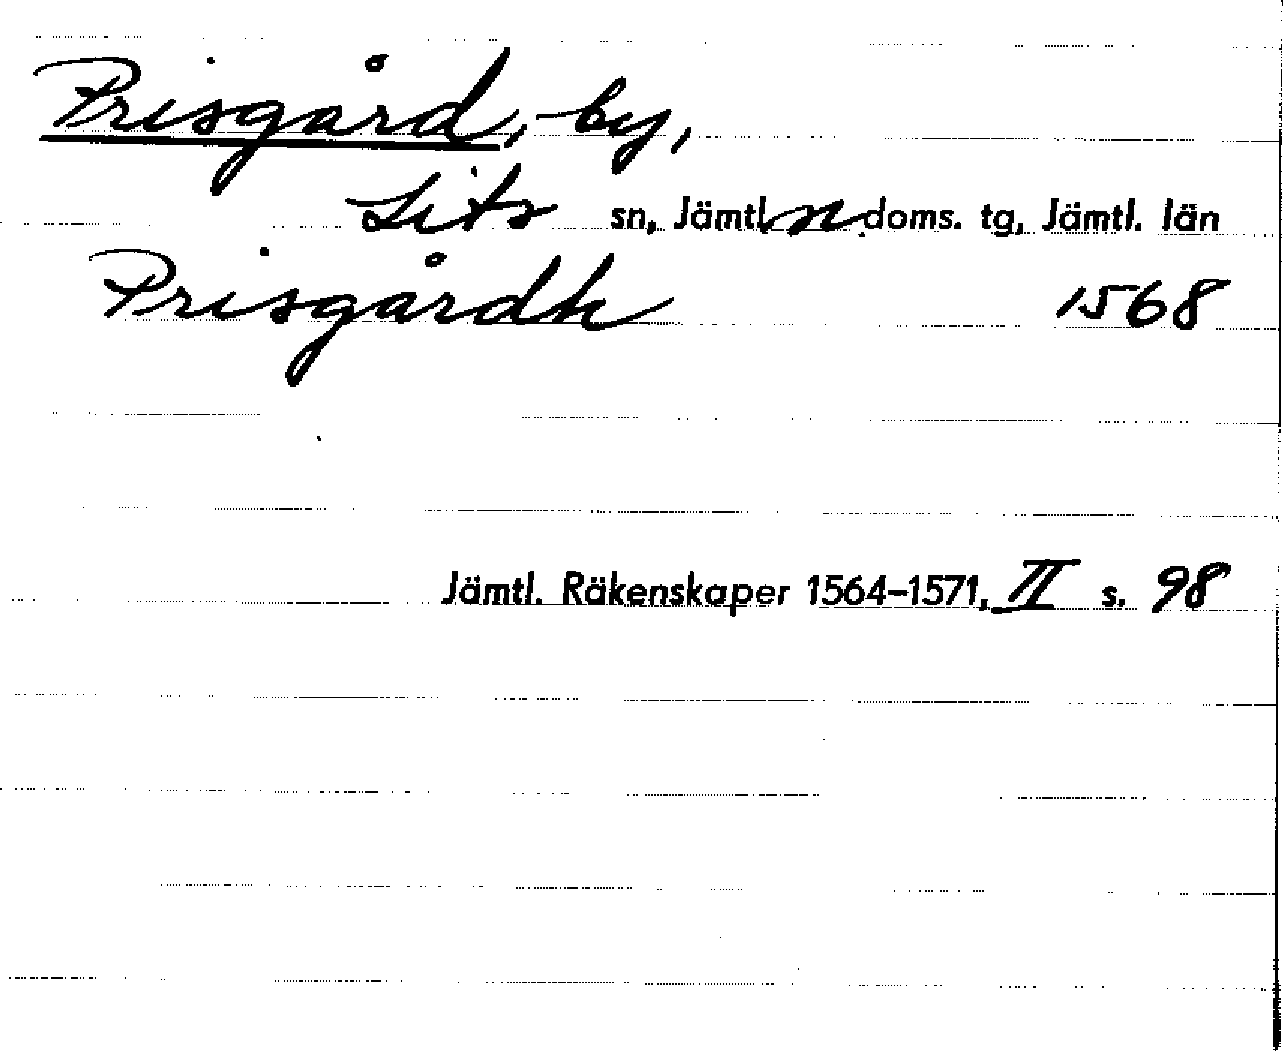 Prisgård, by,
Lits sn, Jämtl. n doms. tg, Jämtl. län
Prisgårdh 1568
Jämtl. Räkenskaper 1564–1571, II s. 98